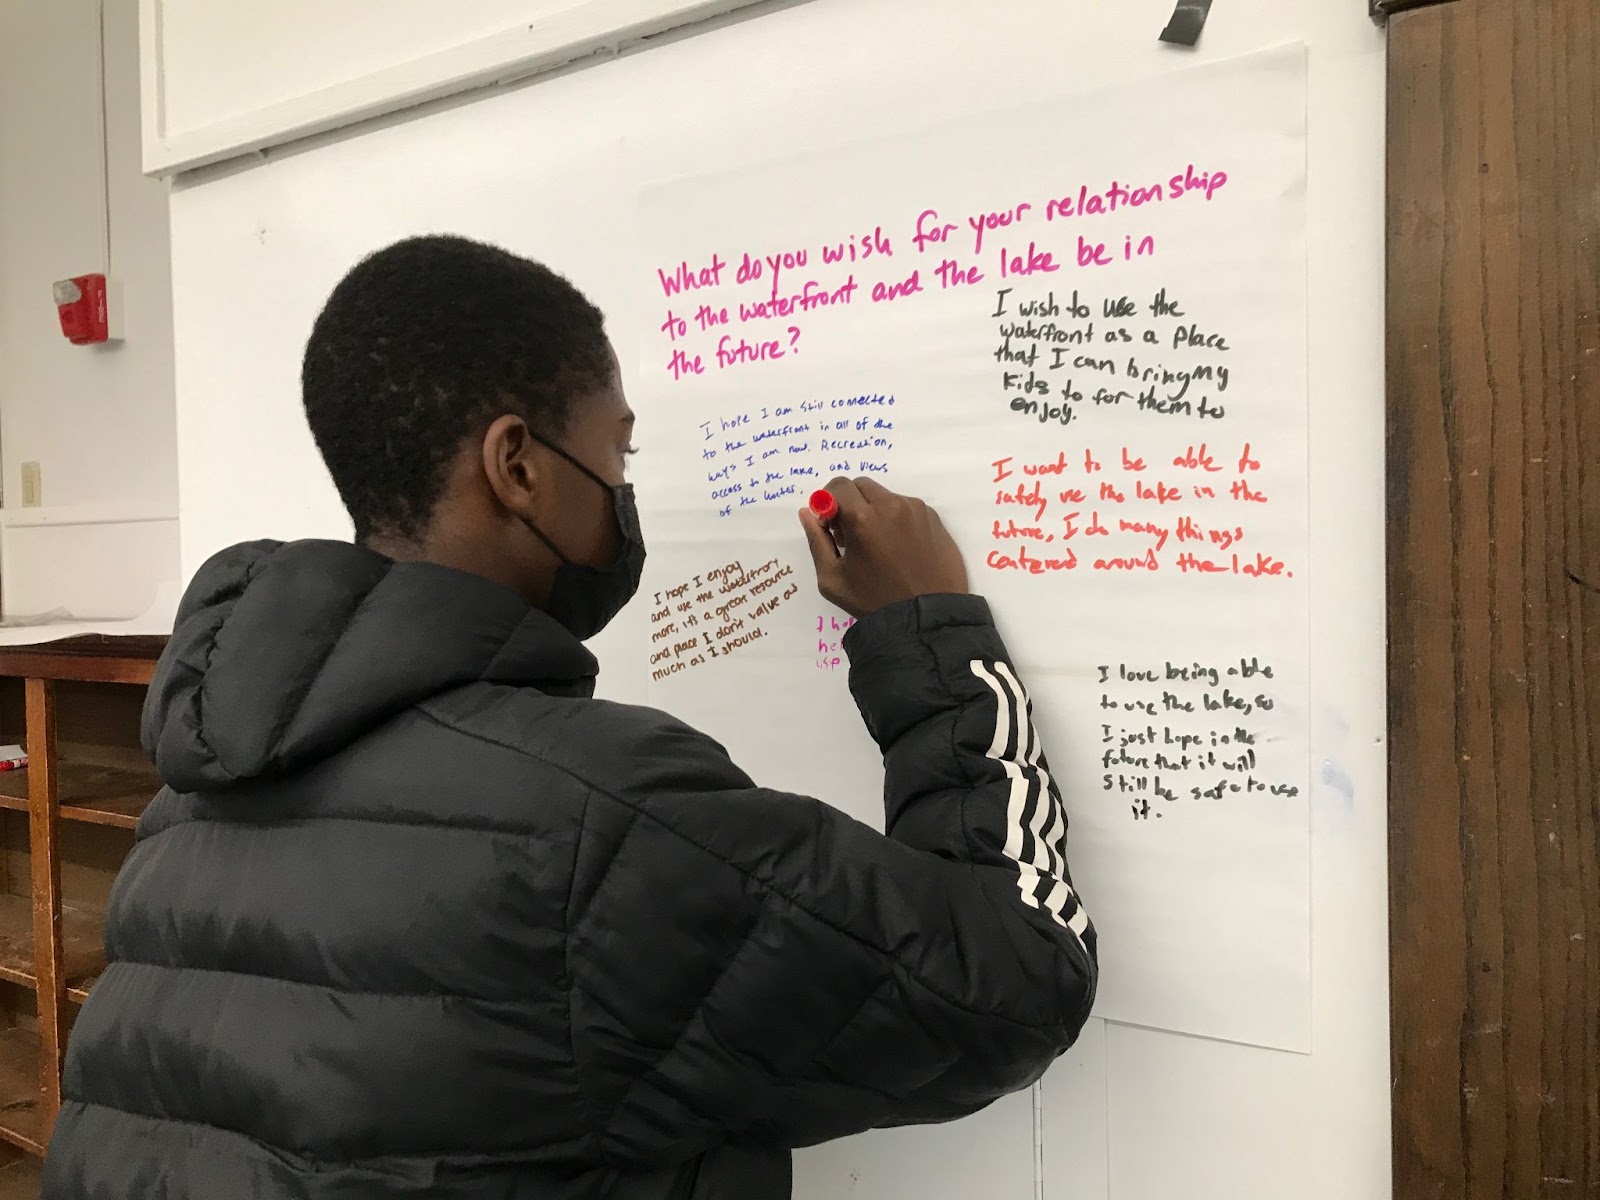 What do you wish for your relationship
to the waterfront and the lake be in
the future?
I wish to use the
waterfront as a place
that I can bring my
kids to for them to
enjoy.
I hope I am still connected
to the waterfront in all of the
ways I am now. Recreation,
access to the lake, and views
of the water.
I want to be able to
safely use the lake in the
future, I do many things
centered around the lake.
I hope I enjoy
and use the
more, it's a great resource
and place I don't value as
much as I should.
I
I love being able
to use the lake, so
I just hope in the
future that it will
still be safe to use
it.